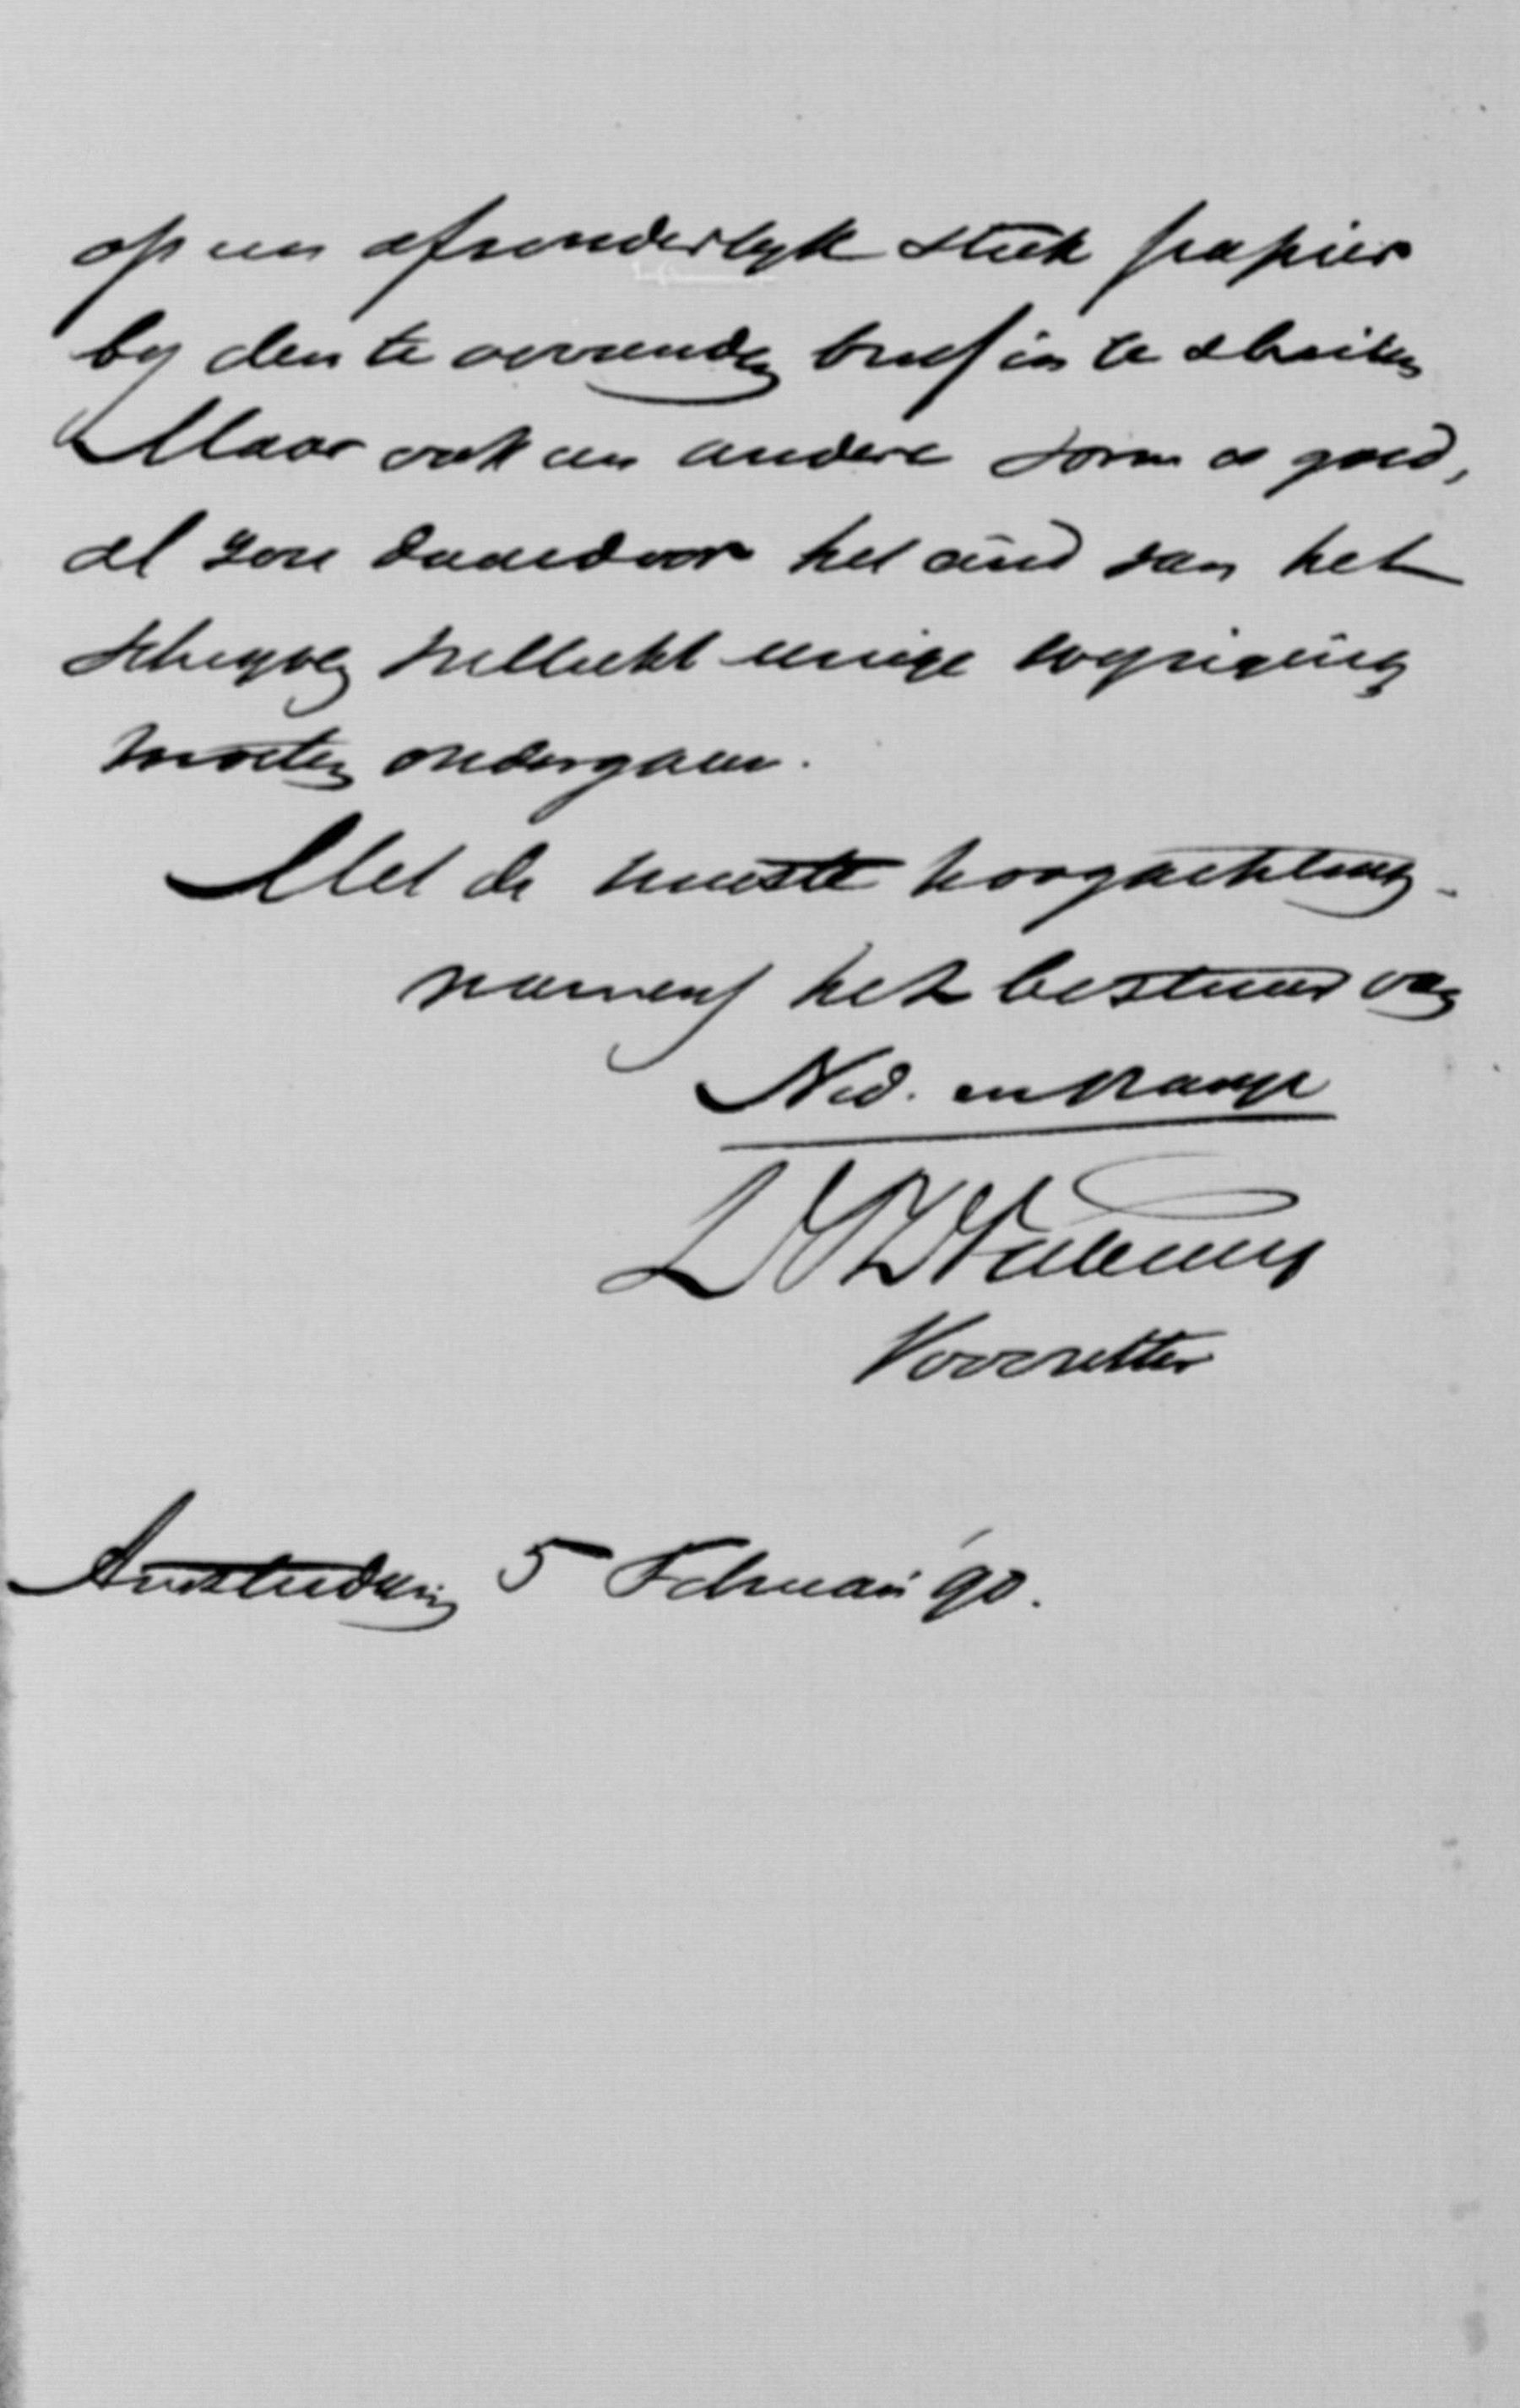 op een afzonderlyk stuk papier
by den te verzenden brief in te sluiten
Maar ook een andere vorm is goed,
al zou daardoor het eind van het
schryven wellicht eenige wyziging
moeten ondergaan.
Met de meeste hoogachting
namens het bestuur van
Ned. en Oranje
Voorzitter
Amsterdam 5 Februari '90.